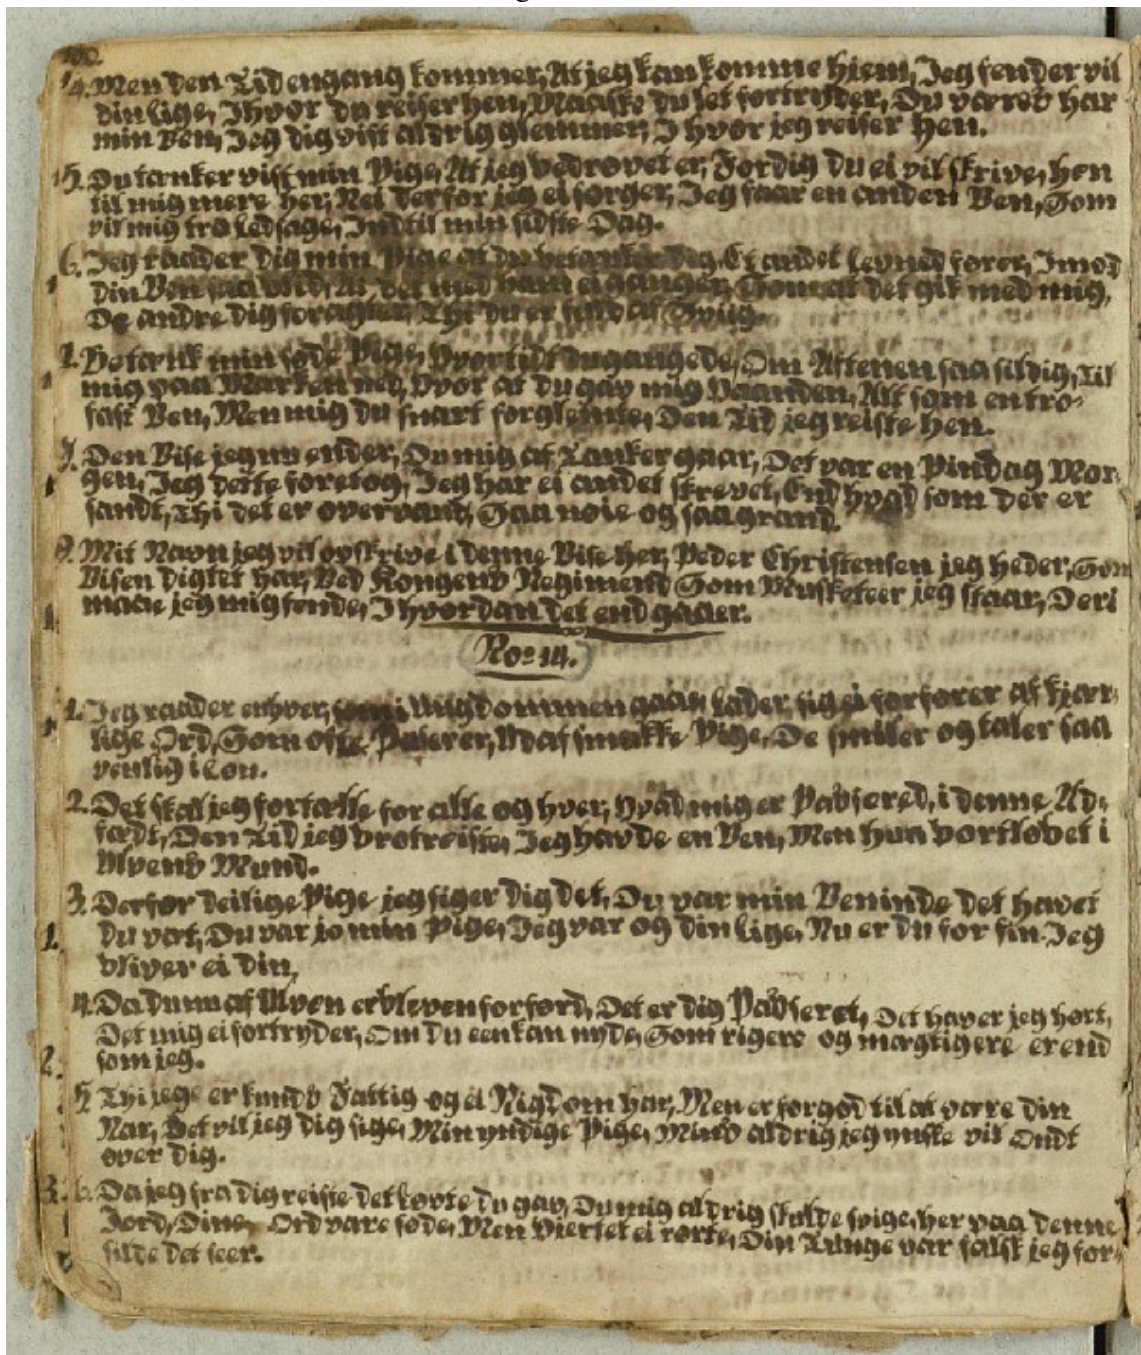 100.
14. Men den Tid engang kommer, At jeg kan komme hiem, Jeg fender vil
din lige, I hvor du reiser hen, Maaske du let fortryder, Du været har
min Ven, Jeg dig vist aldrig glemmer, I hvor jeg reiser hen.
15. Du tænker vist min Pige, At jeg bedrøvet er, Fordig du ei vil skrive, hen
til mig mere her, Nei derfor jeg ei sørger, Jeg faar en anden Ven, Som
vil mig tro ledsage, Indtil min sidste Dag.
6. Jeg raader dig min Pige at du betænker dig, Et andet levned fører, Imod
din Ven saa ond, At det med ham ei ganger, Som at det gik med mig,
De andre dig foragter, Thi du er fuld af Sviig.
7. Betænk min søde Pige, Hvortidt du gangede, Om Aftenen saa sildig, Til
mig paa Marken ned, Hvor at du gav mig Haanden, Alt som en tro-
fast Ven, Men mig du snart forglemte, Den Tid jeg reiste hen.
Den Vise jeg nu ender, Du mig af Tanker gaar, Det var en Pindag Mor-
gen, Jeg dette foretog, Jeg har ei andet skrevet, End hvad som der er
sandt, Thi det er Saa nøie og saa grand.
9. Mit Navn jeg vil opskrive i denne Vise her, Peder Christensen jeg heder, Som
Visen digtet har, Ved Kongens Regimend Som Musketeer jeg staar, Derl
maae jeg mig fende, I hvordan det end gaaer.
No 14.
1. Jeg raader enhver, som i Ungdommen gaar, lader sig ei forfører af kjær-
lige Ord, Som ofte Paserer, Ud af smukke Pige, De smiler og taler saa
venlig i Løn.
2. Det skal jeg fortælle for alle og hver, Hvad mig er Passered, i denne Ud-
fardt, Den Tid jeg brotreiste, Jeg havde en Ven, Men hun bortløbet i
Ulvens Mund.
3. Derfor deilige Pige jeg siger dig det, Du var min Veninde det haver
du vært, Du var jo min Pige, Jeg var og din lige, Nu er du for fin Jeg
bliver ei din,
4. Da du nu af Ulven er bleven forførd, Det er dig Passeret, Det haver jeg hørt,
Det mig ei fortryder, Om du een kan nyde, Som rigere og mægtigere er end
som jeg.
5. Thi jege er kunds Fattig og ei Rigdom har, Men er forgod til at være din
Nar, Det vil jeg dig sige, Min yndige Pige, Mins aldrig jeg ynske vil Ondt
over dig.
6. Da jeg fra dig reiste det løvte du gav, Du mig aldrig skulde svige, her paa denne
Jord, Dine, Ord vare søde, Men Hiertet ei rørte, Din Tunge var falsk jeg for-
silde det seer.